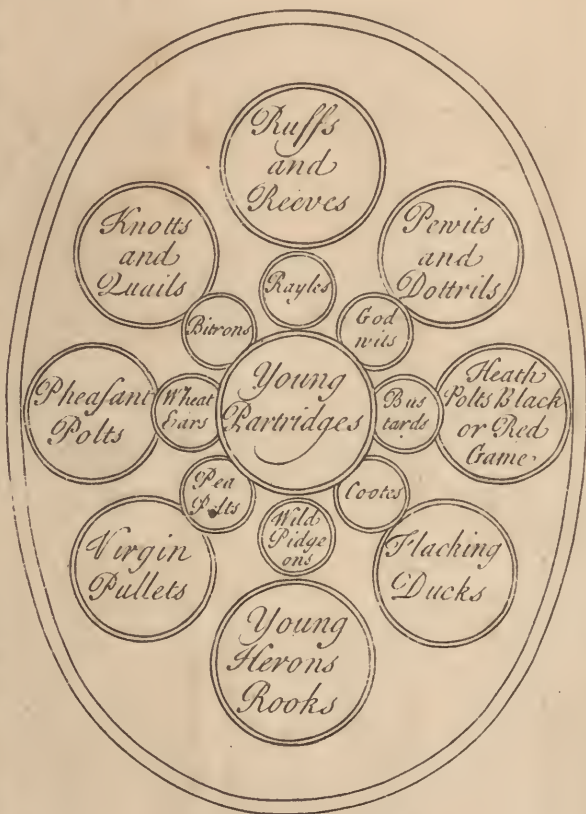 Ruffs
and
Reeves
Knotts
and
Quails
Pewits
and
Dottrils
Rayles
Bitrons
God
wits
Pheasant
Polts
Wheat
Ears
Young
Partridges
Bus
tards
Heath
Polts Black
or Red
Game
Pea
Polts
Cootes
Wild
Pidge
ons
Virgin
Pullets
Flacking
Ducks
Young
Herons
Rooks